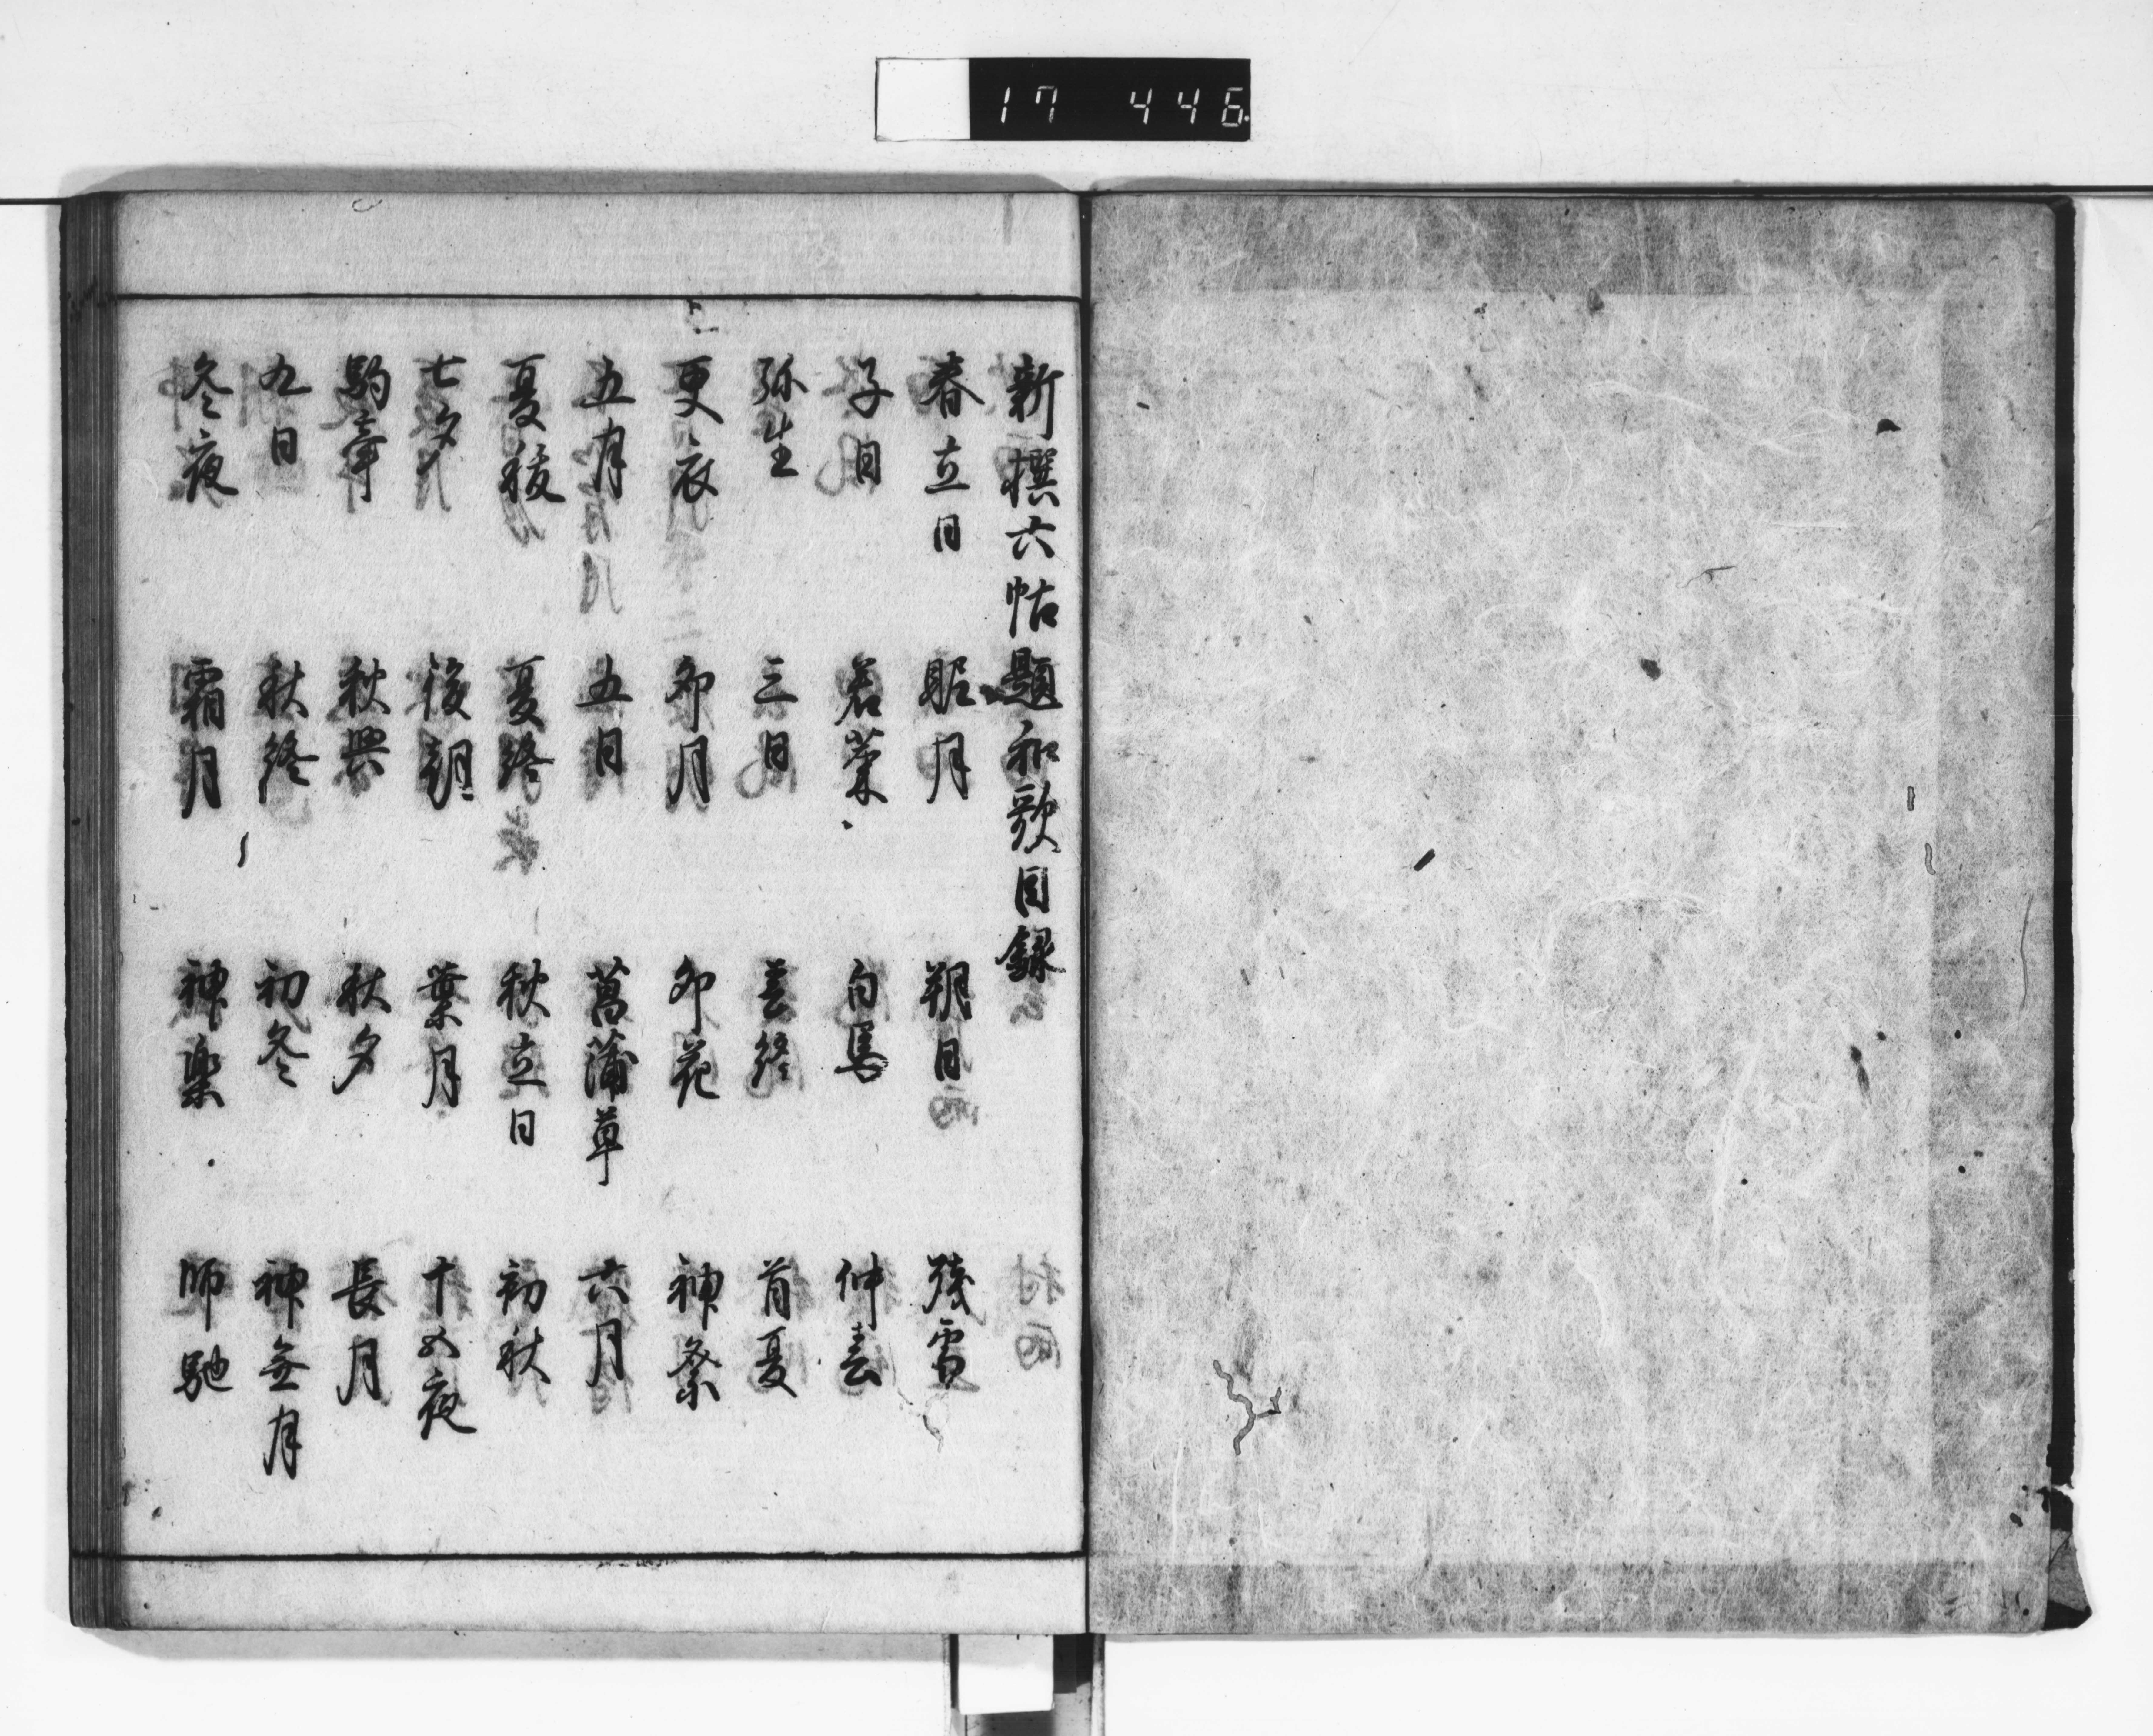 17 446
新撰六帖題和歌目録
春立日 睨月 朔日 残雪
子日 若菜 白馬 仲春
弥生 三日 春終 首夏
更衣 卯月 卯花 神祭
五月 五日 菖蒲草 六月
夏祓 夏終 秋立日 初秋
七夕 後朝 葉月 十五夜
駒牽 秋興 秋夕 長月
九日 秋終 初冬 神無月
冬夜 霜月 神楽 師馳